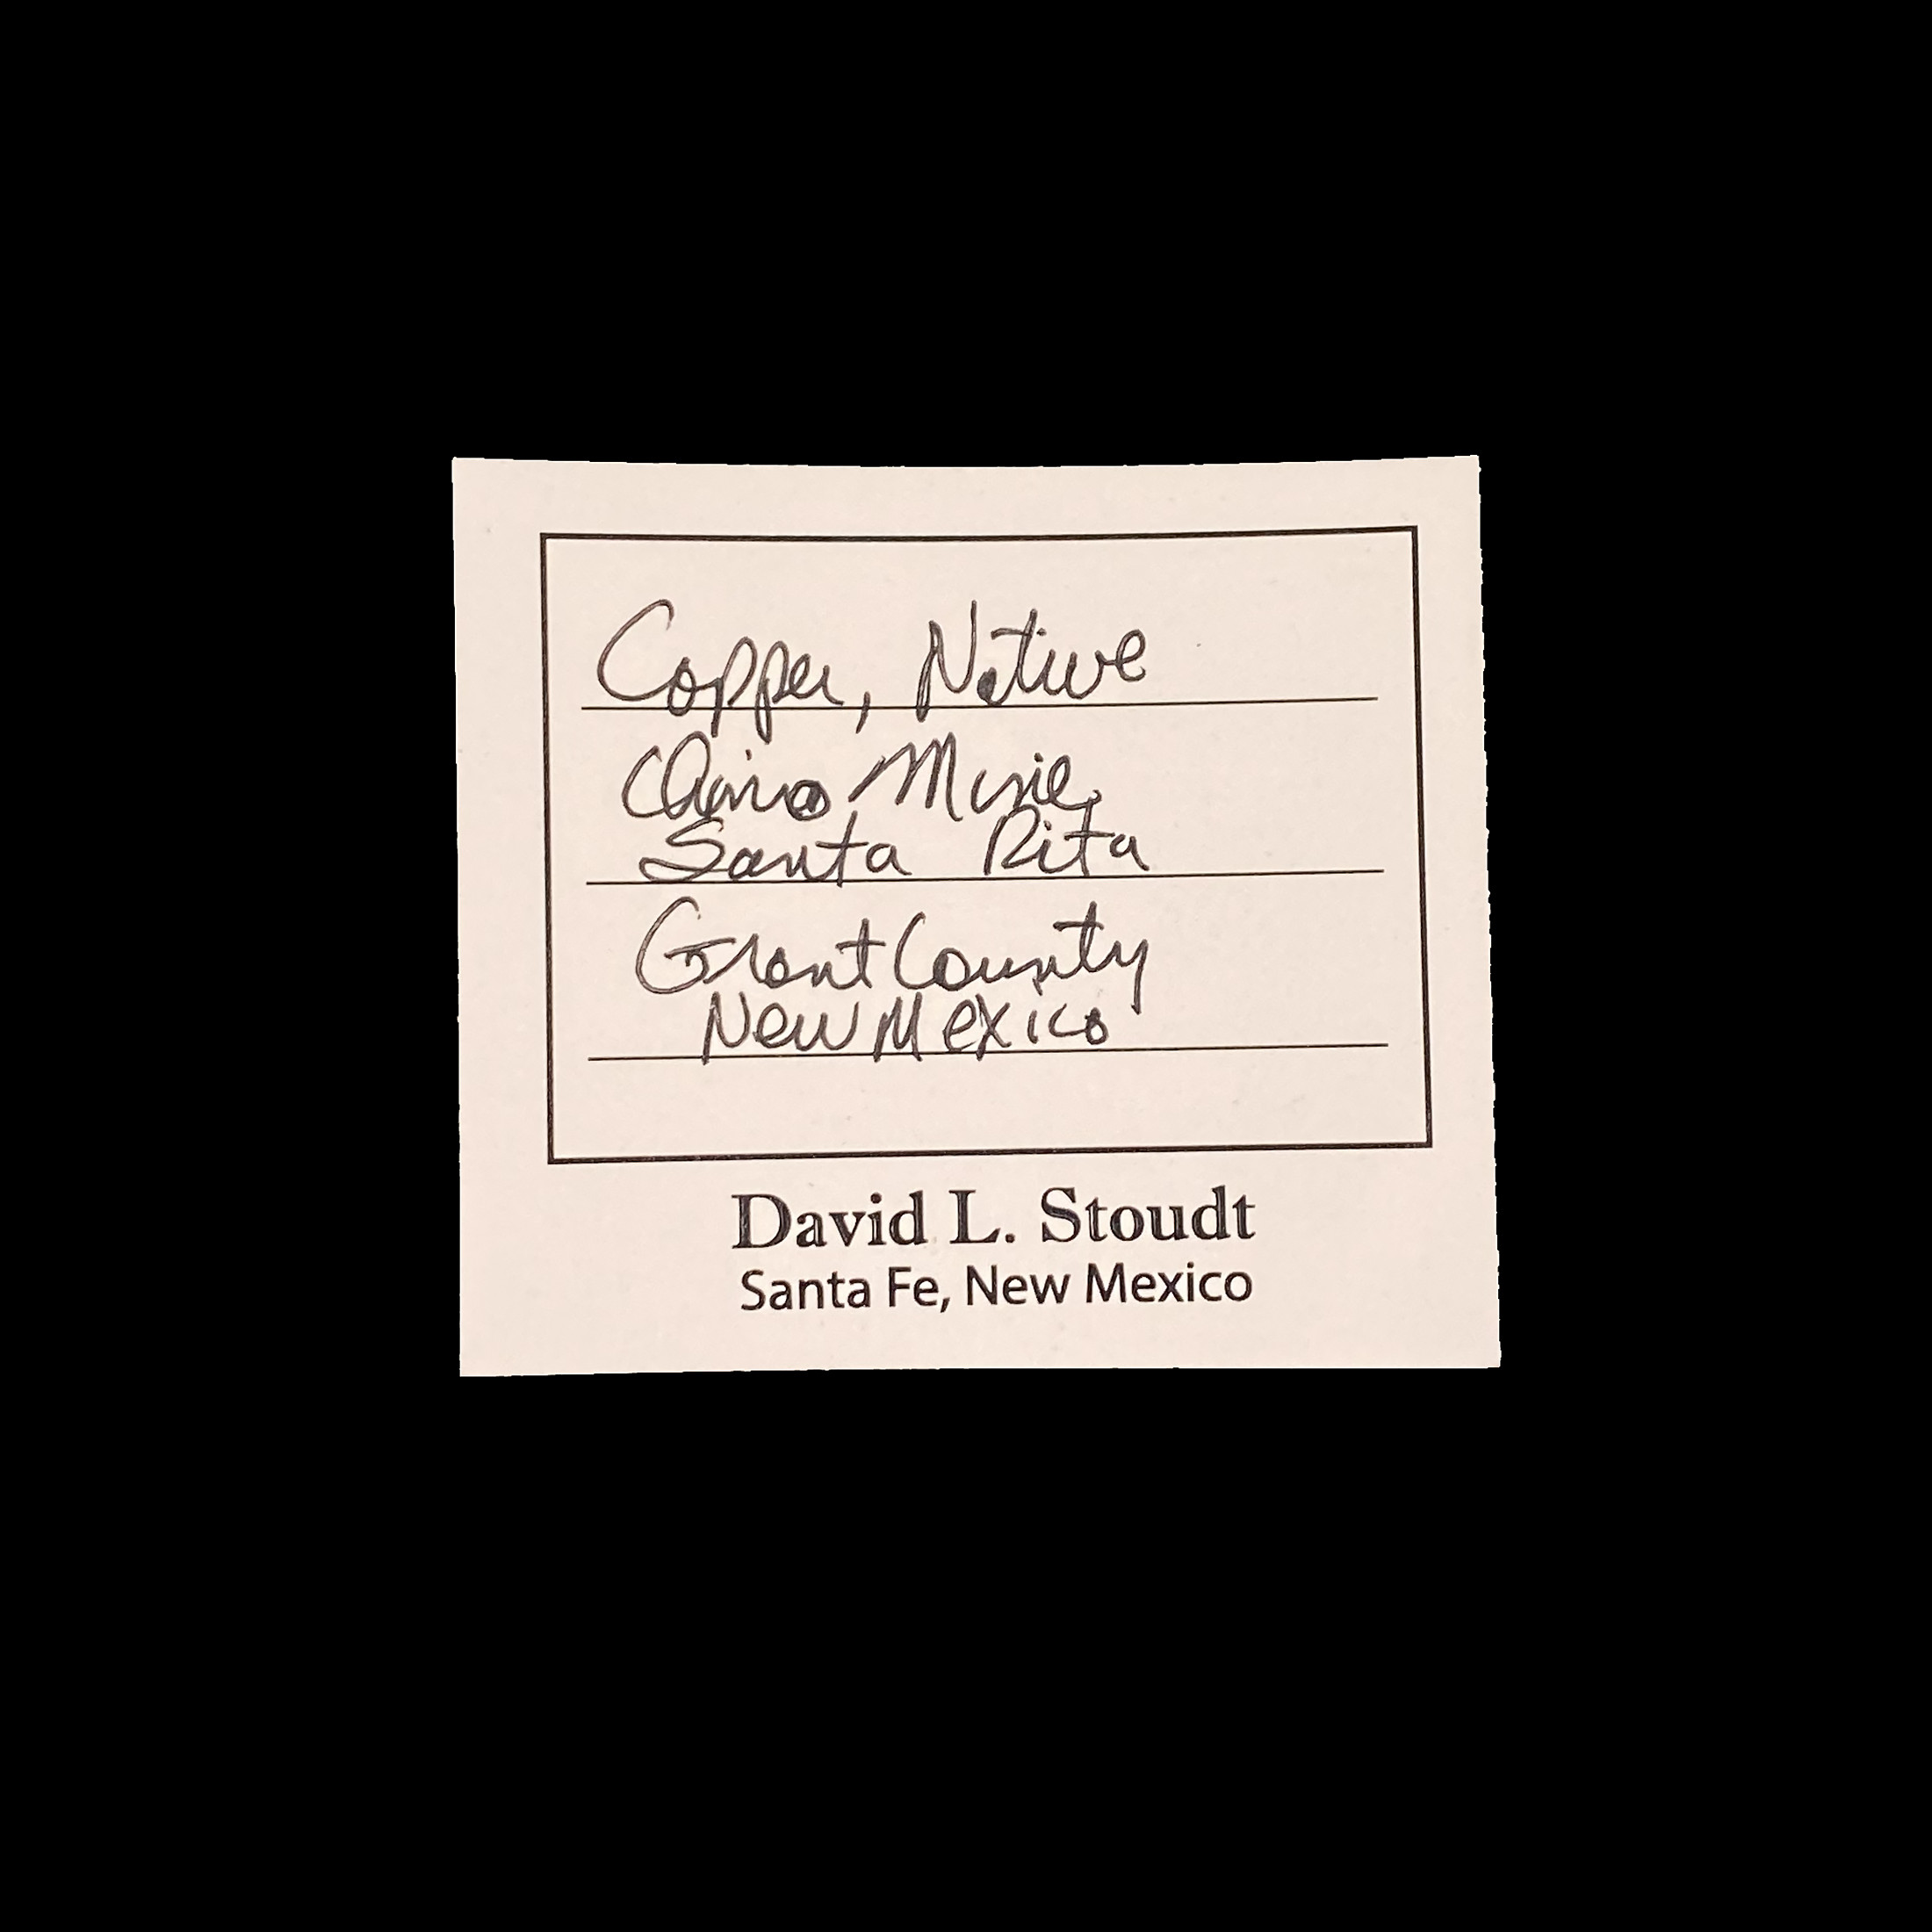 Copper, Native
Chino Mine,
Santa Rita
Grant County
New Mexico
David L. Stoudt
Santa Fe, New Mexico